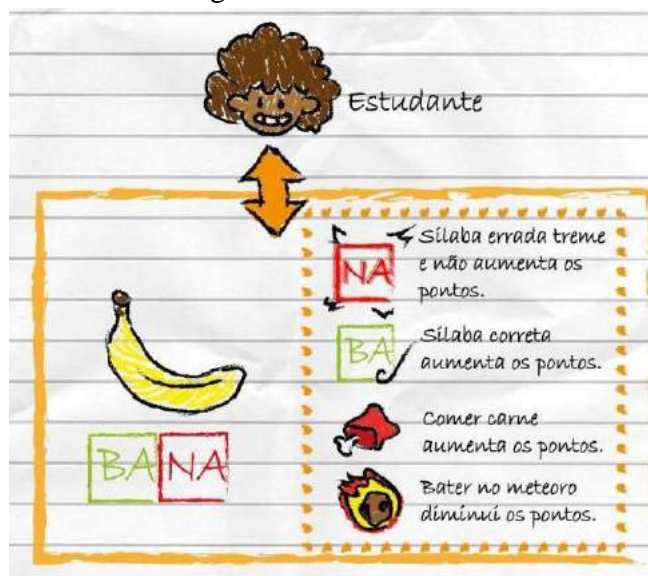 Estudante
NA
Sílaba errada treme
e não aumenta os
pontos.
BA
Sílaba correta
aumenta os pontos.
BA NA
Comer carne
aumenta os pontos.
Bater no meteoro
diminui os pontos.